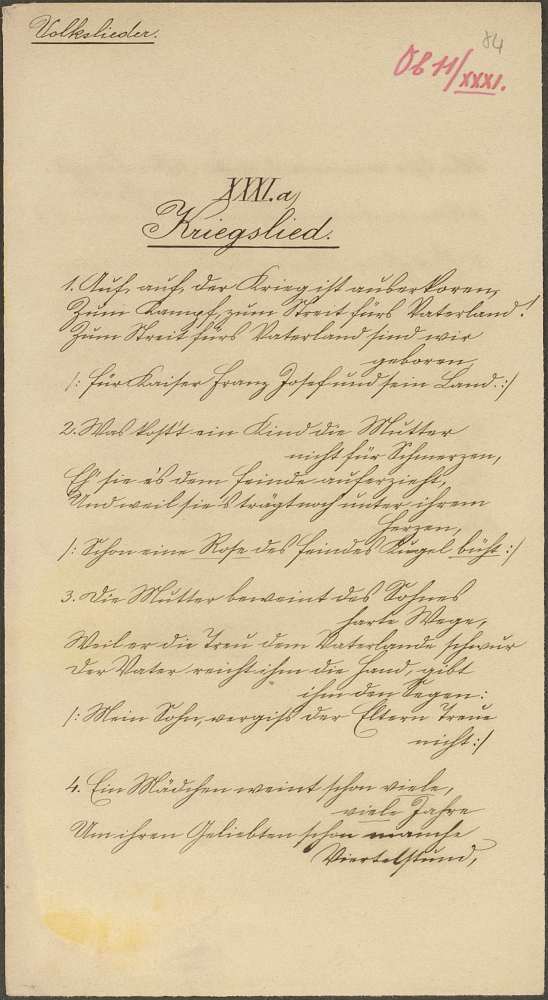 Volkslieder.
84
Ob 11/XXXI.
XXXI.a)
Kriegslied.
1. Auf, auf, der Krieg ist auserkoren,
Zum Kampf, zum Streit fürs Vaterland!
Zum Streit fürs Vaterland sind wir
geboren,
/: Für Kaiser Franz Josef und sein Land. :/
2. Was kost't ein Kind die Mutter
nicht für Schmerzen,
Eh' sie es dem Feinde auferzieht,
Und weil sie's trägt noch unter ihrem
Herzen,
/: Schon eine Rose des Feindes Kugel büht :/
3. Die Mutter beweint des Sohnes
harte Wege,
Weil er die Treu dem Vaterlande schwur
Der Vater reicht ihm die Hand, gibt
ihm den Segen:
/: Mein Sohn, vergiß der Eltern Treue
nicht :/
4. Ein Mädchen weint schon viele,
viele Jahre
Um ihren Geliebten schon manche
Viertelstund,